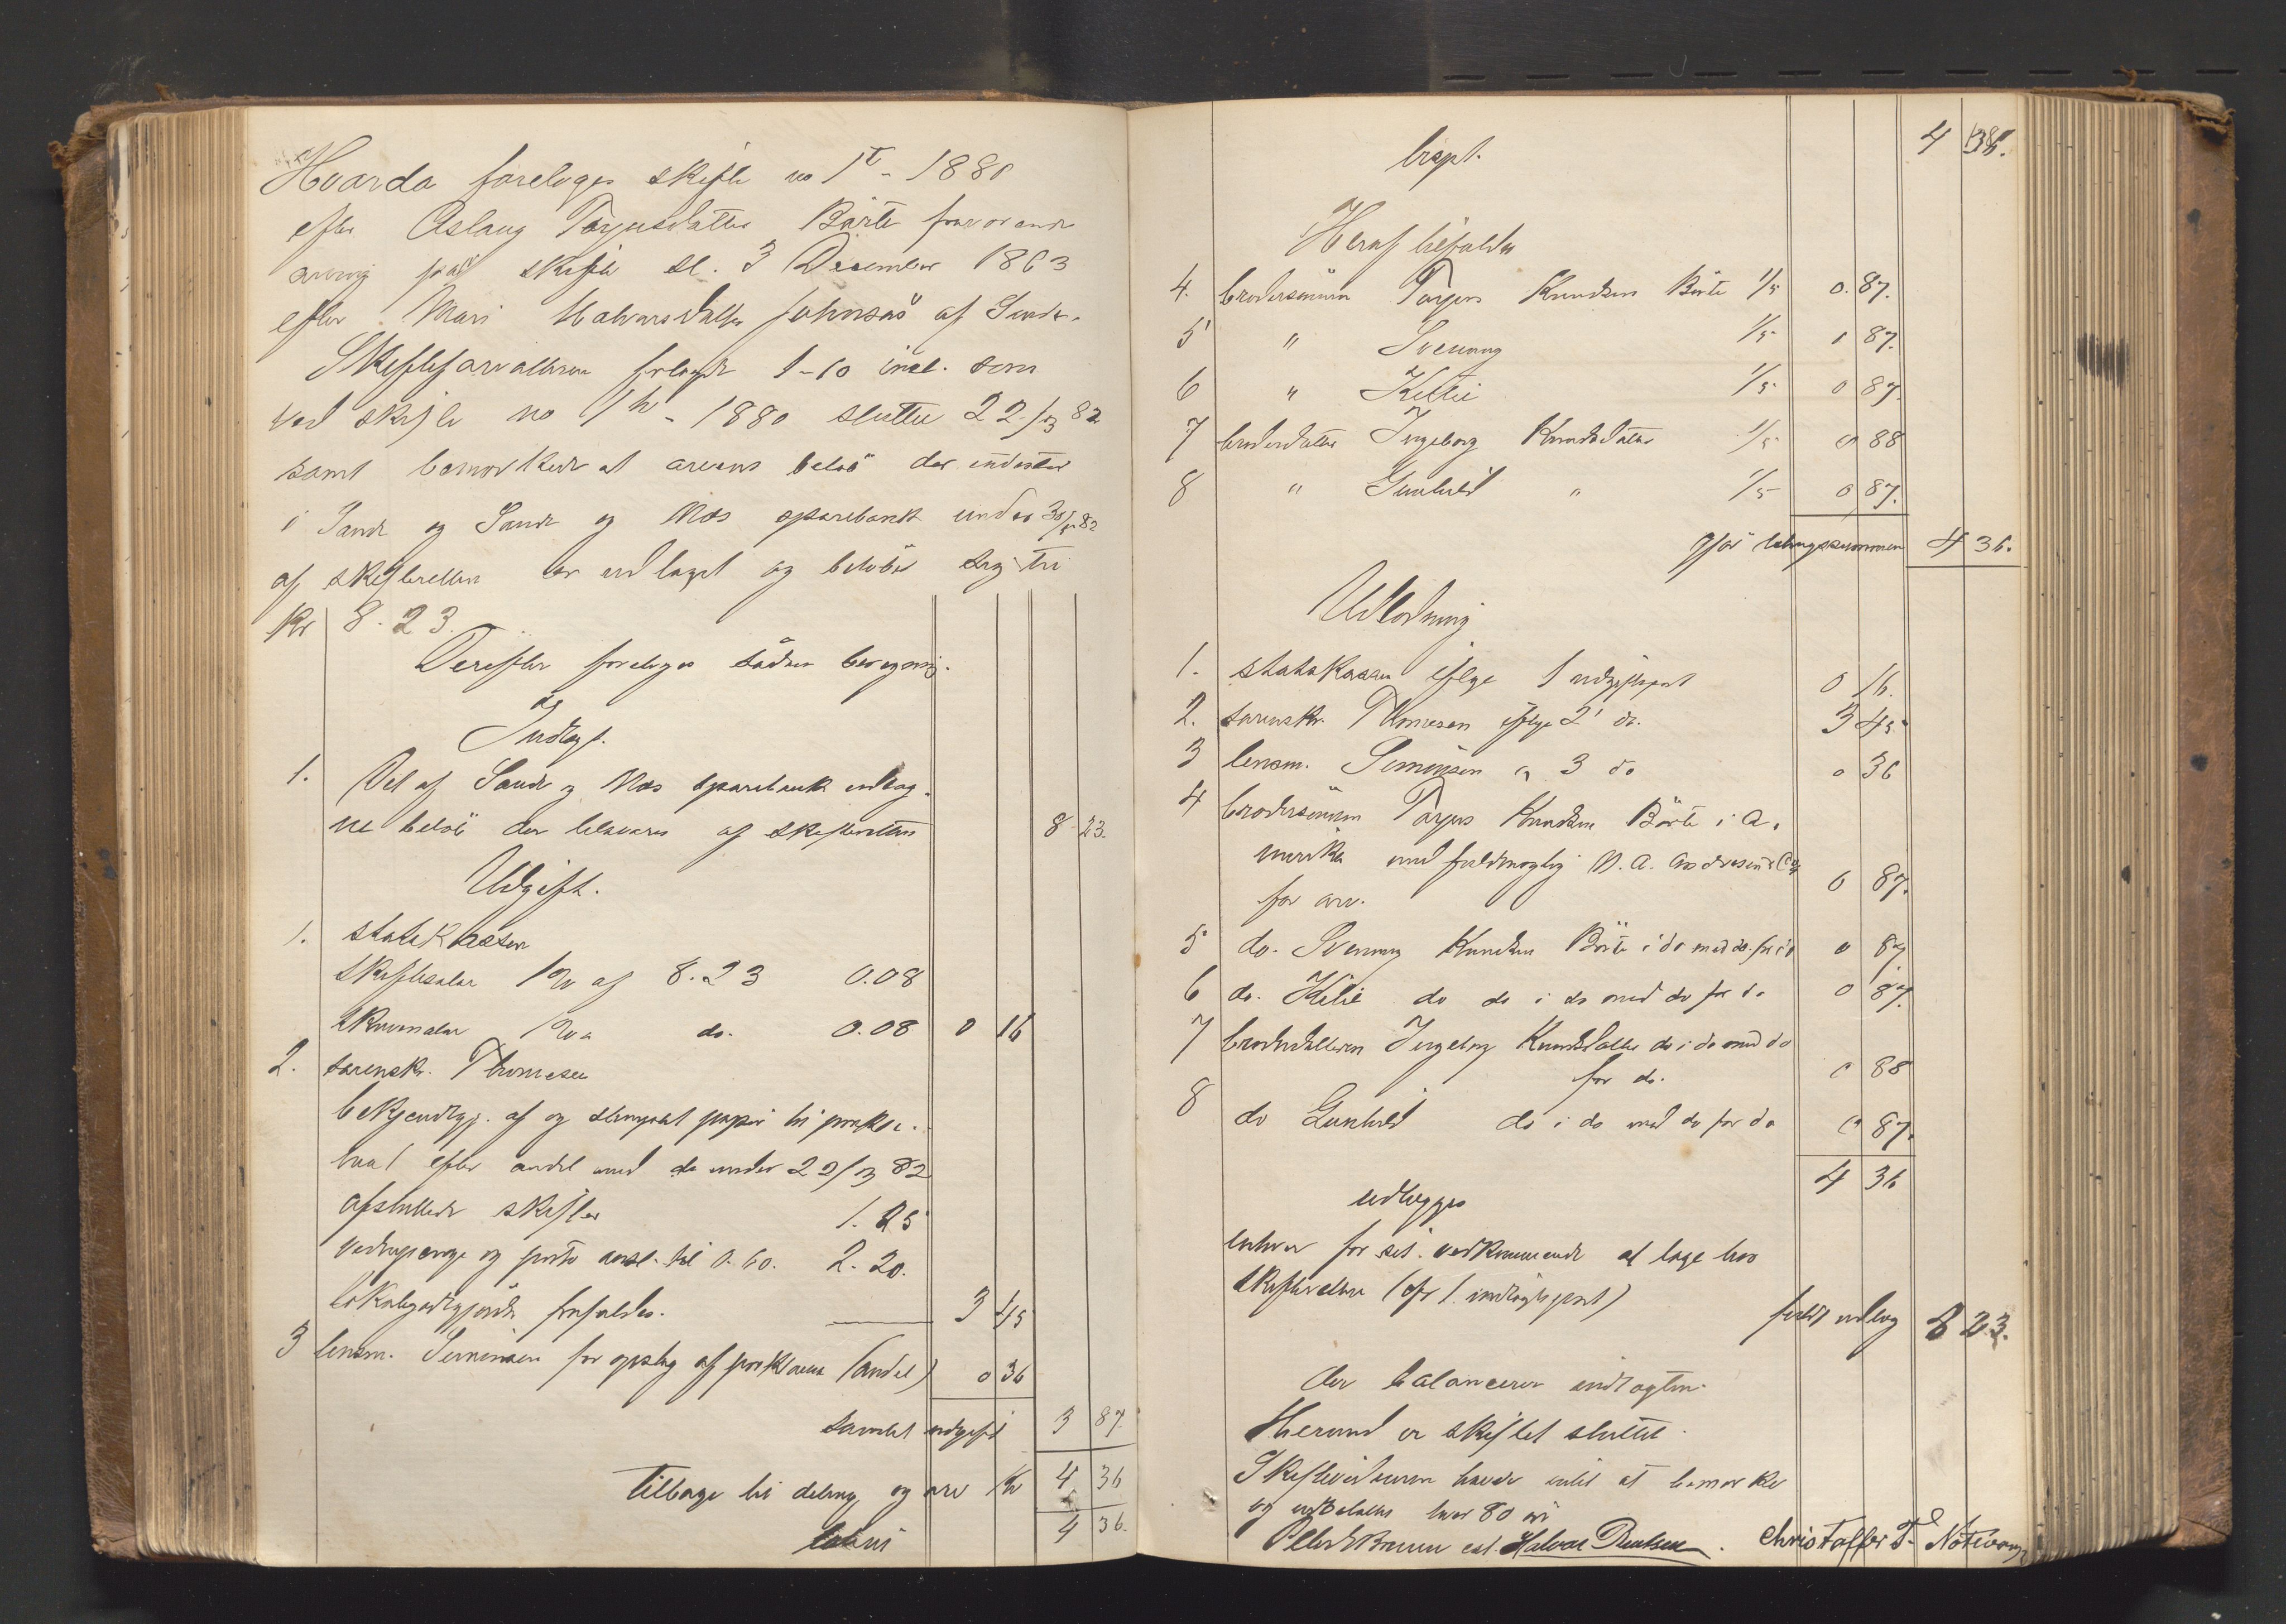 Hvorda foretoges skifte no 1t - 1880
efter Aslaug Tarjusdatter Börte fraværende
arving paa skifte sl. 3 December 1863
efter Mari Halvorsdatter Johnsås af Sande.
Skifteforvalteren fremlagde 1-10 incl. som
ved skifte no 1h - 1880 sluttet 22/3 82
samt bemærkede at arvens belöb der indestod
i Sande og Næs sparebank under 30/ 82
af skifteretten er udtaget og beløber sig til
Kr 8.23.
Derefter foretoges sådan beregning.
Indtægt.
1. Det af Sande og Næs sparebank udtag-
ne belöb der besvares af skifteretten 8 23.
Udgift.
1. statskassen
skiftesalær 1% af 8.23 0.08
skrivesalær 1% a do. 0.08 0 16
2. sorenskr. Thomesen
bekjendtgj. af og stemplet papir til prokla-
ma 1 efter andel med de under 22/3 82
afsluttede skifter 1.25
netterpenge og porto ansl. til 0.60. 2.20.
lokalgodtgjörelse frafaldes. 3 45
3 lensm. Semmingsen for opslag af proklama (andel) 0 36
samlet udgift 3 87.
tilbage til deling og arv Kr 4 36
latus 4 36.
trspt. 4 36.
Heraf tilfalder
4. brodersönnen Tarjus Knudsen Börte 1/5 0.87.
5 " Svenung 1/5 0 87.
6 " Kittil 1/5 0 87.
7 broderdatter Ingeborg Knudsdatter 1/5 0 88
8 " Gunhild " 1/5 0 87.
gjør delingssummen 4 36.
Udlodning
1. statskassen ifølge 1 udgiftspost 0 16.
2. sorenskr. Thomesen ifölge 2 do. 3 45
3 lensm. Semmingsen " 3 do 0 36
4 brodersönnen Tarjus Knudsen Börte i A-
merika med fuldmægtig N. A. Andresen & Co
for arv. 0 87.
5 do. Svenung Knudsen Börte i do med do. for do 0 87
6 do. Kittil do do i do med do for do 0 87.
7 broderdatteren Ingeborg Knudsdatter do i do med do
for do. 0 88
8 do Gunhild do i do med do for do 0 87.
4 36
udlægges
enhver for sit vedkommende at tage hos
skifteretten (cfr 1. indtægtspost)
fuldt udlæg 8 23.
der balancerer indtægten.
Hermed er skiftet sluttet.
Skiftevidnerne havde intet at bemærke
og udbetaltes hver 80 øre
Halvor Christoffer T.